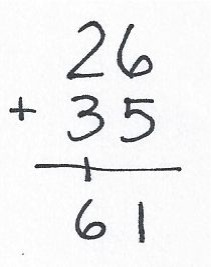 26
+ 35
1
61